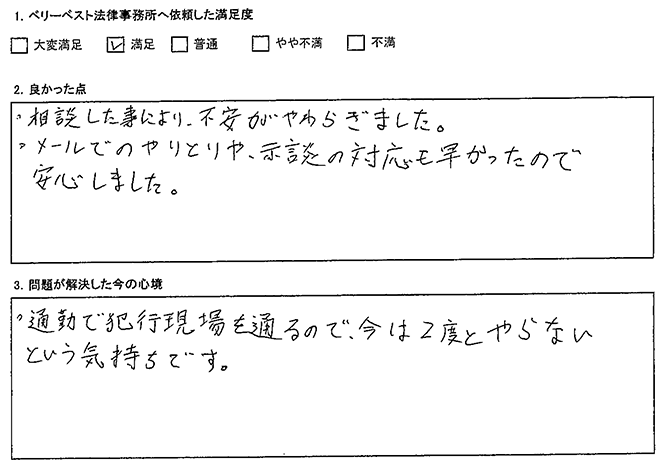 1. ベリーベスト法律事務所へ依頼した満足度
□ 大変満足 ☑ 満足 □ 普通 □ やや不満 □ 不満
2. 良かった点
・相談した事により、不安がやわらぎました。
・メールでのやりとりや、示談の対応も早かったので
安心しました。
3. 問題が解決した今の心境
・通勤で犯行現場を通るので、今は2度とやらない
という気持ちです。